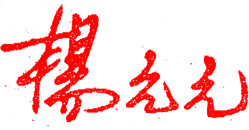 楊元元